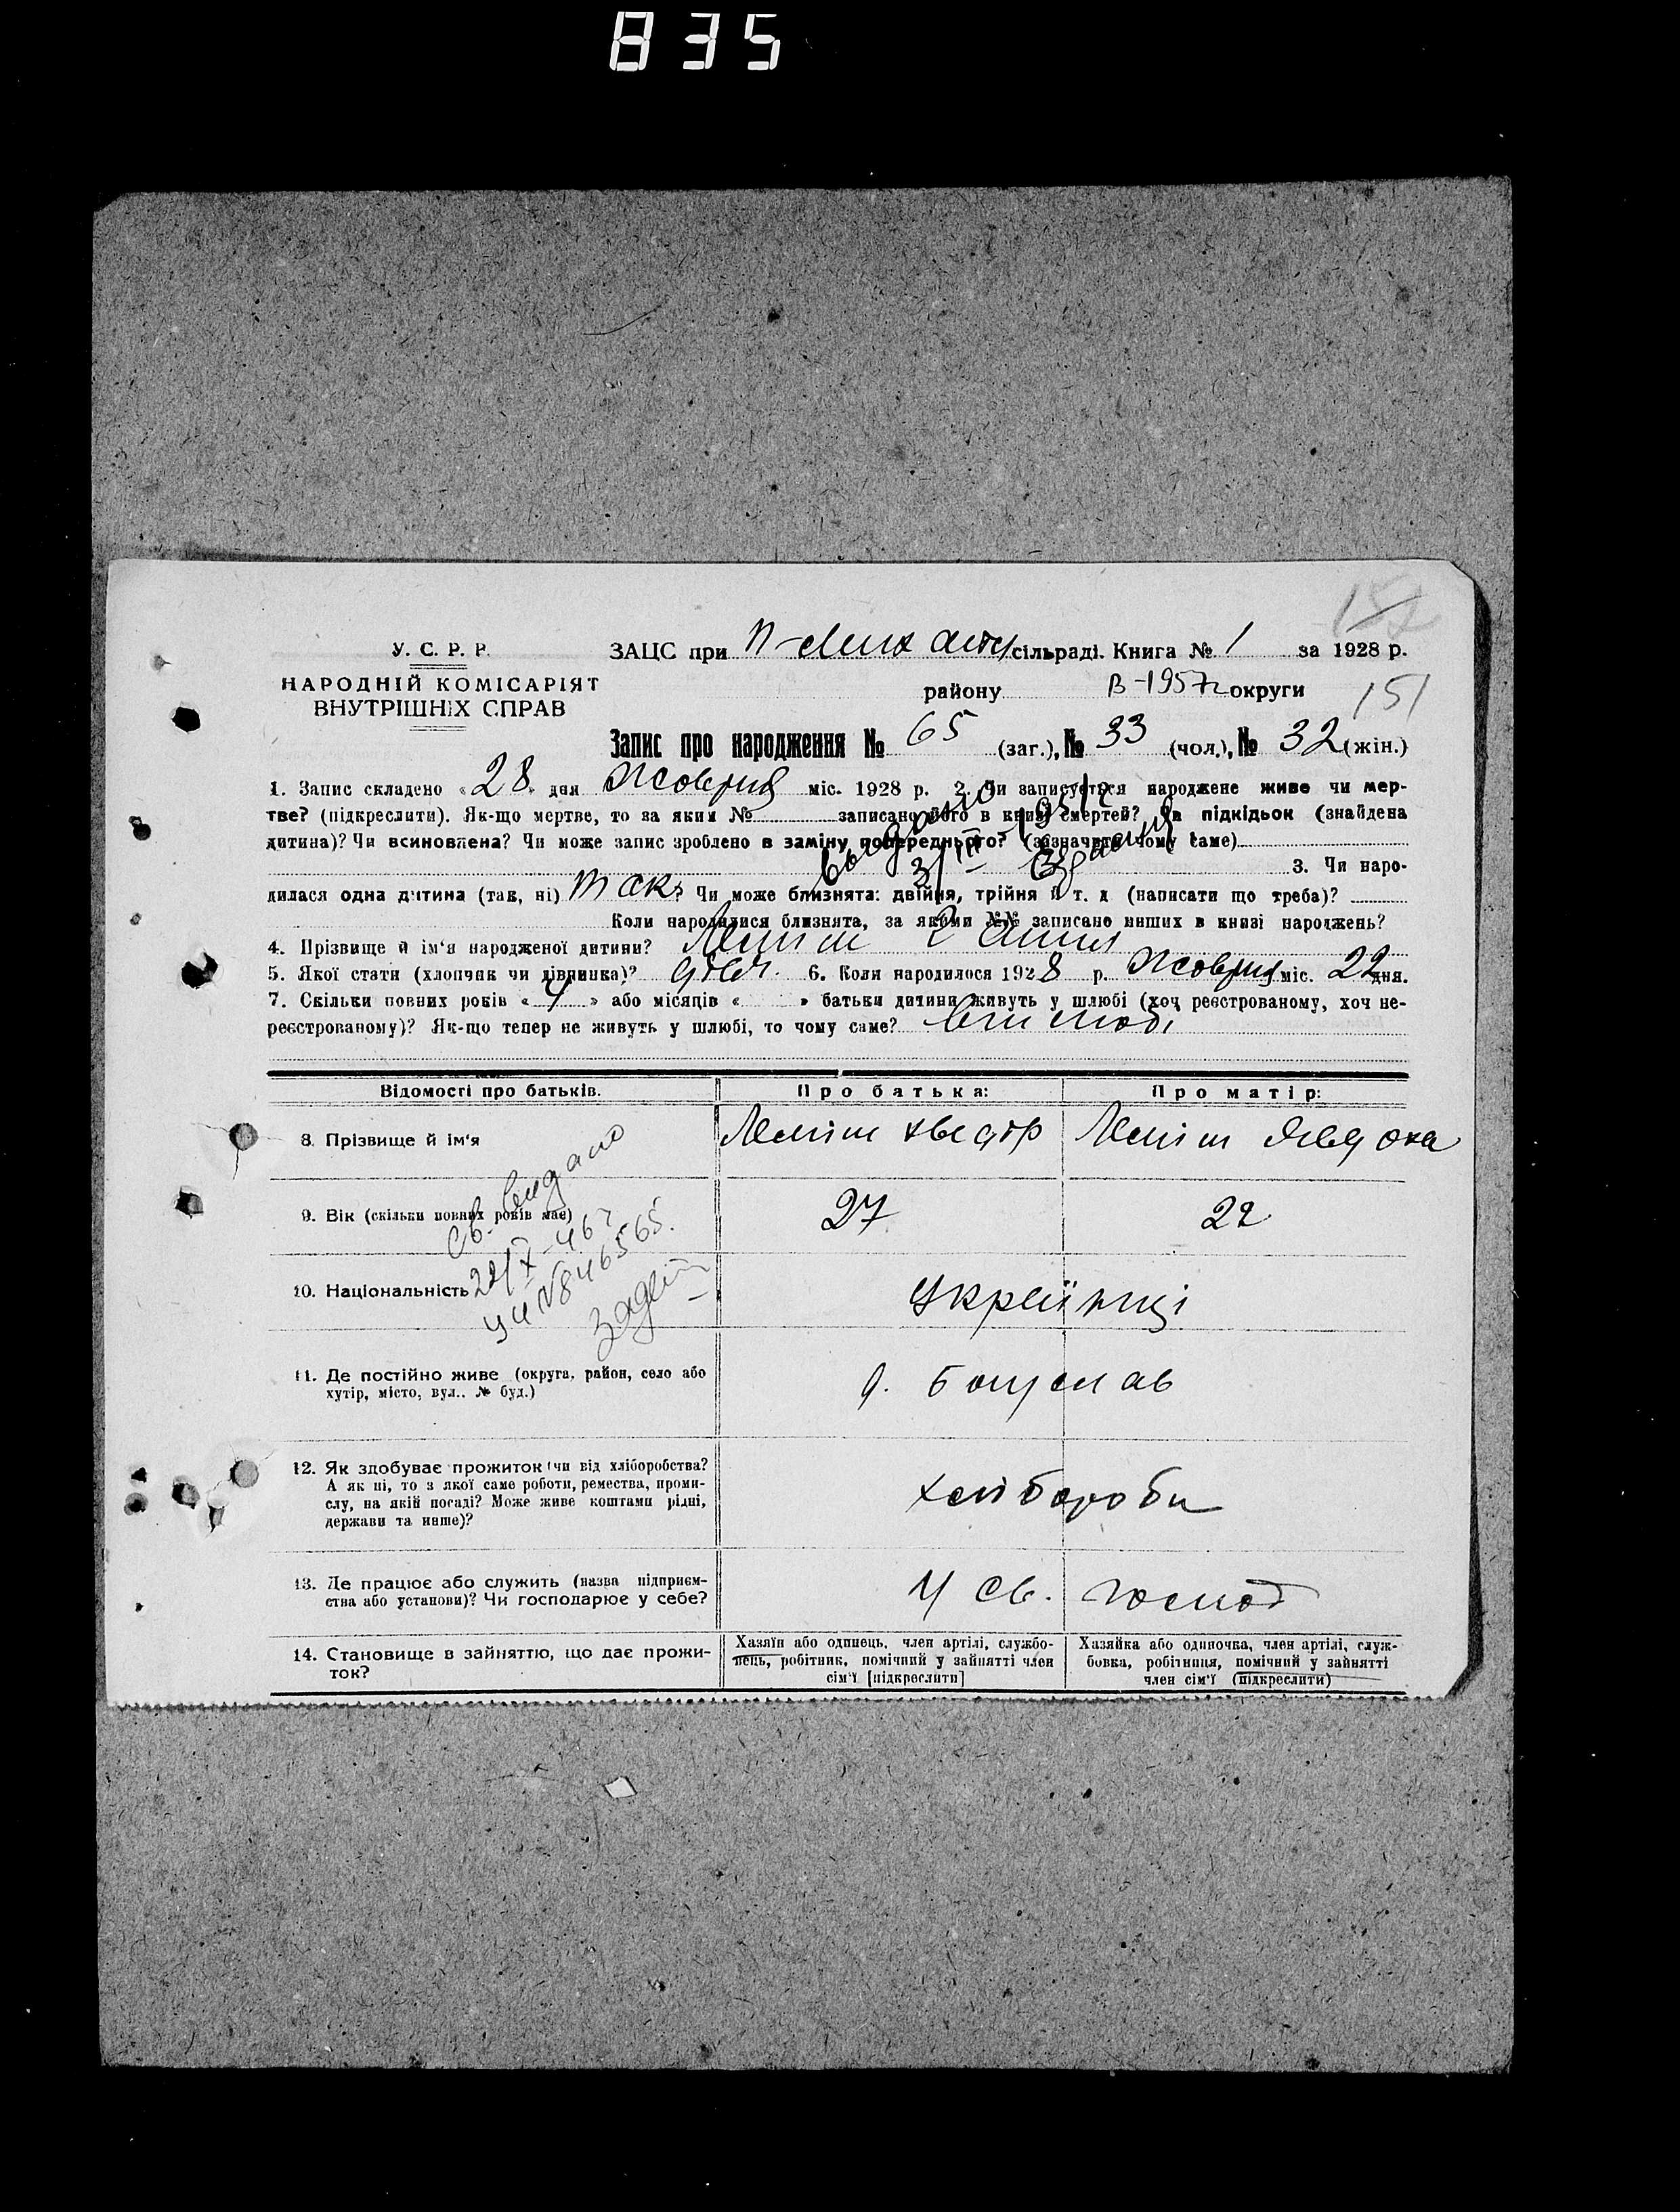 835
У. С. Р. Р.
НАРОДНІЙ КОМІСАРІЯТ
ВНУТРІШНІХ СПРАВ
ЗАЦС при сільраді. Книга № 1 за 1928 р.
району В-1957г округи
151
Запис про народження № 65 (заг.), № 33 (чол.), № 32 (жін.)
1. Запис складено « 28 » дня Жовтня міс. 1928 р. 2. Чи записується народжене живе чи мер-
тве? (підкреслити). Як-що мертве, то за яким № записано його в книзі смертей? Чи підкідьок (знайдена
дитина)? Чи всиновлена? Чи може запис зроблено в заміну попереднього? (зазначити чому саме)
3. Чи наро-
дилася одна дитина (так, ні) так? Чи може близнята: двійня, трійня й т. д (написати що треба)?
Коли народилися близнята, за якими №№ записано инших в книзі народжень?
4. Прізвище й ім'я народженої дитини?
5. Якої стати (хлопчик чи дівчинка)? дівч. 6. Коли народилося 1928 р. Жовтня міс. 22 дня.
7. Скільки повних років « 4 » або місяців « » батьки дитини живуть у шлюбі (хоч реєстрованому, хоч не-
реєстрованому)? Як-що тепер не живуть у шлюбі, то чому саме?
Відомості про батьків.
Про батька:
Про матір:
8. Прізвище й ім'я
Хведір
Явдоха
9. Вік (скільки повних років має)
27
22
св. видано
10. Національність
Українці
11. Де постійно живе (округа, район, село або
хутір, місто, вул.. № буд.)
12. Як здобуває прожиток (чи від хліборобства?
А як ні, то з якої саме роботи, ремества, проми-
слу, на якій посаді? Може живе коштами рідні,
держави та инше)?
хлібороби
13. Де працює або служить (назва підприєм-
ства або установи)? Чи господарює у себе?
У св. господ
14. Становище в зайняттю, що дає прожи-
ток?
Хазяїн або одинець, член артілі, службо-
вець, робітник, помічний у зайнятті член
сім'ї [підкреслити]
Хазяйка або одиночка, член артілі, служ-
бовка, робітниця, помічний у зайнятті
член сім'ї (підкреслити)